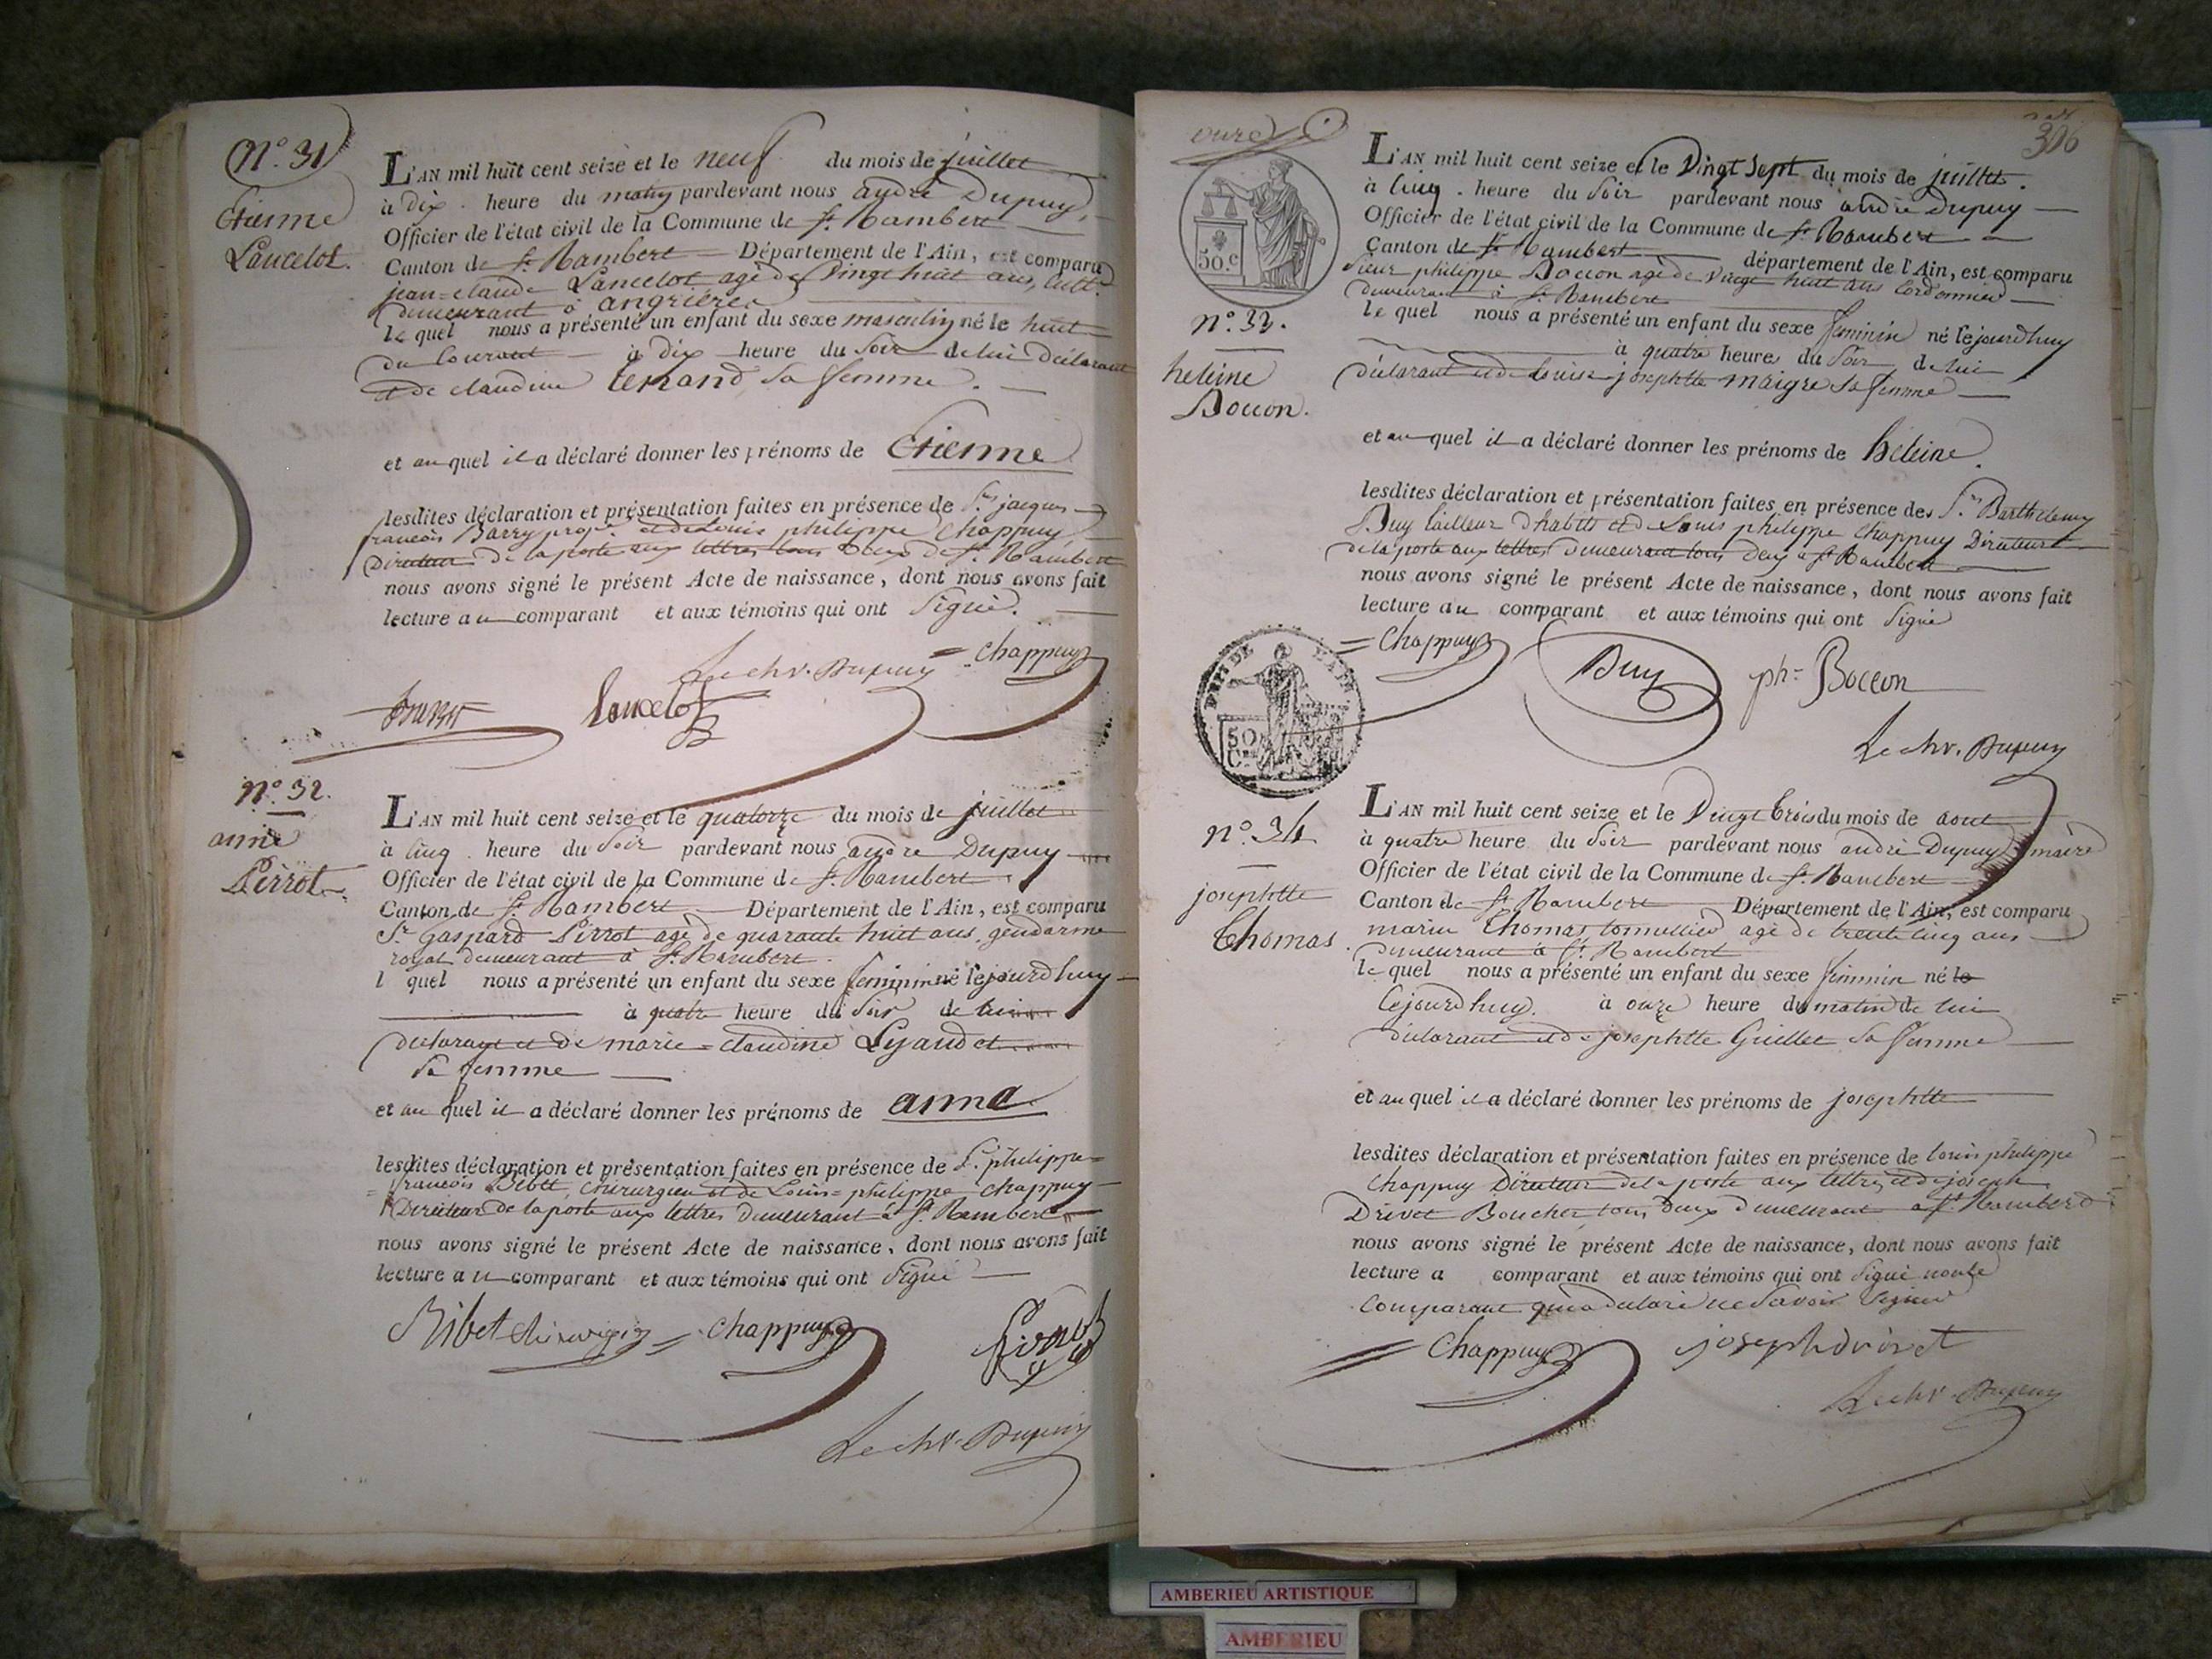 N.° 31
Etienne
Lancelot.
L'AN mil huit cent seize et le neuf du mois de juillet
à dix heure du matin pardevant nous andré Dupuy,
Officier de l'état civil de la Commune de St. Rambert
Canton de St. Rambert Département de l'Ain, est comparu
jean=claude Lancelot agé de Vingt huit ans, cult.r
demeurant à angrieres
le quel nous a présenté un enfant du sexe masculin né le huit
du Courant à dix heure du Soir de lui déclarant
et de claudine tenand sa femme.
et au quel il a déclaré donner les prénoms de Etienne
lesdites déclaration et présentation faites en présence de Sr. jacques
francois Barry prop.re et de Louis philippe Chappuy,
Directeur de la poste aux lettres tous deux de St. Rambert
nous avons signé le présent Acte de naissance, dont nous avons fait
lecture au comparant et aux témoins qui ont Signé.
Le chr. Dupuy = Chappuy
Lancelot
N.° 32.
anne
Pirrot.
L'AN mil huit cent seize et le quatorze du mois de juillet
à Cinq heure du Soir pardevant nous andré Dupuy
Officier de l'état civil de la Commune de St. Rambert
Canton de St. Rambert Département de l'Ain, est comparu
Sr. Gaspard Pirrot agé de quarante huit ans, gendarme
royal demeurant à St. Rambert.
l quel nous a présenté un enfant du sexe feminin né lejourdhuy
à quatre heure du Soir de lui
déclarant et de marie=claudine Lyaudet
sa femme
et au quel il a déclaré donner les prénoms de anne
lesdites déclaration et présentation faites en présence de Sr. philippe=
=francois Bibet, chirurgien et de Louis=philippe Chappuy
Directeur de la poste aux lettres Demeurant à St. Rambert
nous avons signé le présent Acte de naissance, dont nous avons fait
lecture au comparant et aux témoins qui ont Signé
Bibet chirurgien = Chappuy Pirrot
Le chr. Dupuy
306
50.c
N.° 33.
heleine
Boccon.
L'AN mil huit cent seize et le Vingt Sept du mois de juillet.
à Cinq heure du Soir pardevant nous andré Dupuy
Officier de l'état civil de la Commune de St. Rambert
Canton de St. Rambert département de l'Ain, est comparu
Sieur philippe Boccon agé de Vingt huit ans Cordonnier
demeurant à St. Rambert
le quel nous a présenté un enfant du sexe feminin né lejourdhuy
à quatre heures du Soir de lui
déclarant et de Louise josephtte maigre Sa femme
et au quel il a déclaré donner les prénoms de héleine.
lesdites déclaration et présentation faites en présence des Sr. Barthelemy
Buy tailleur dhabits et de Louis philippe Chappuy Directeur
de la poste aux lettres demeurant tous deux à St. Rambert
nous avons signé le présent Acte de naissance, dont nous avons fait
lecture au comparant et aux témoins qui ont Signé
= Chappuy Buy ph= Boccon
50 C.
Le chr. Dupuy
N.° 34
josephtte
Thomas.
L'AN mil huit cent seize et le Vingt trois du mois de aout
à quatre heure du Soir pardevant nous andré Dupuy maire
Officier de l'état civil de la Commune de St. Rambert
Canton de St. Rambert Département de l'Ain, est comparu
marin Thomas tonnellier agé de trente cinq ans
demeurant à St. Rambert
le quel nous a présenté un enfant du sexe feminin né le
lejourdhuy. à onze heure du matin de lui
déclarant et de josephtte Guillet Sa femme
et au quel il a déclaré donner les prénoms de josephtte
lesdites déclaration et présentation faites en présence de louis philippe
Chappuy Directeur de la poste aux lettres et de joseph
Drivet Boucher tous deux demeurant à St. Rambert
nous avons signé le présent Acte de naissance, dont nous avons fait
lecture a comparant et aux témoins qui ont Signé non le
Comparant qui a déclaré ne Savoir Signer
= Chappuy joseph drivet
Le chr. Dupuy
AMBERIEU ARTISTIQUE
AMBERIEU